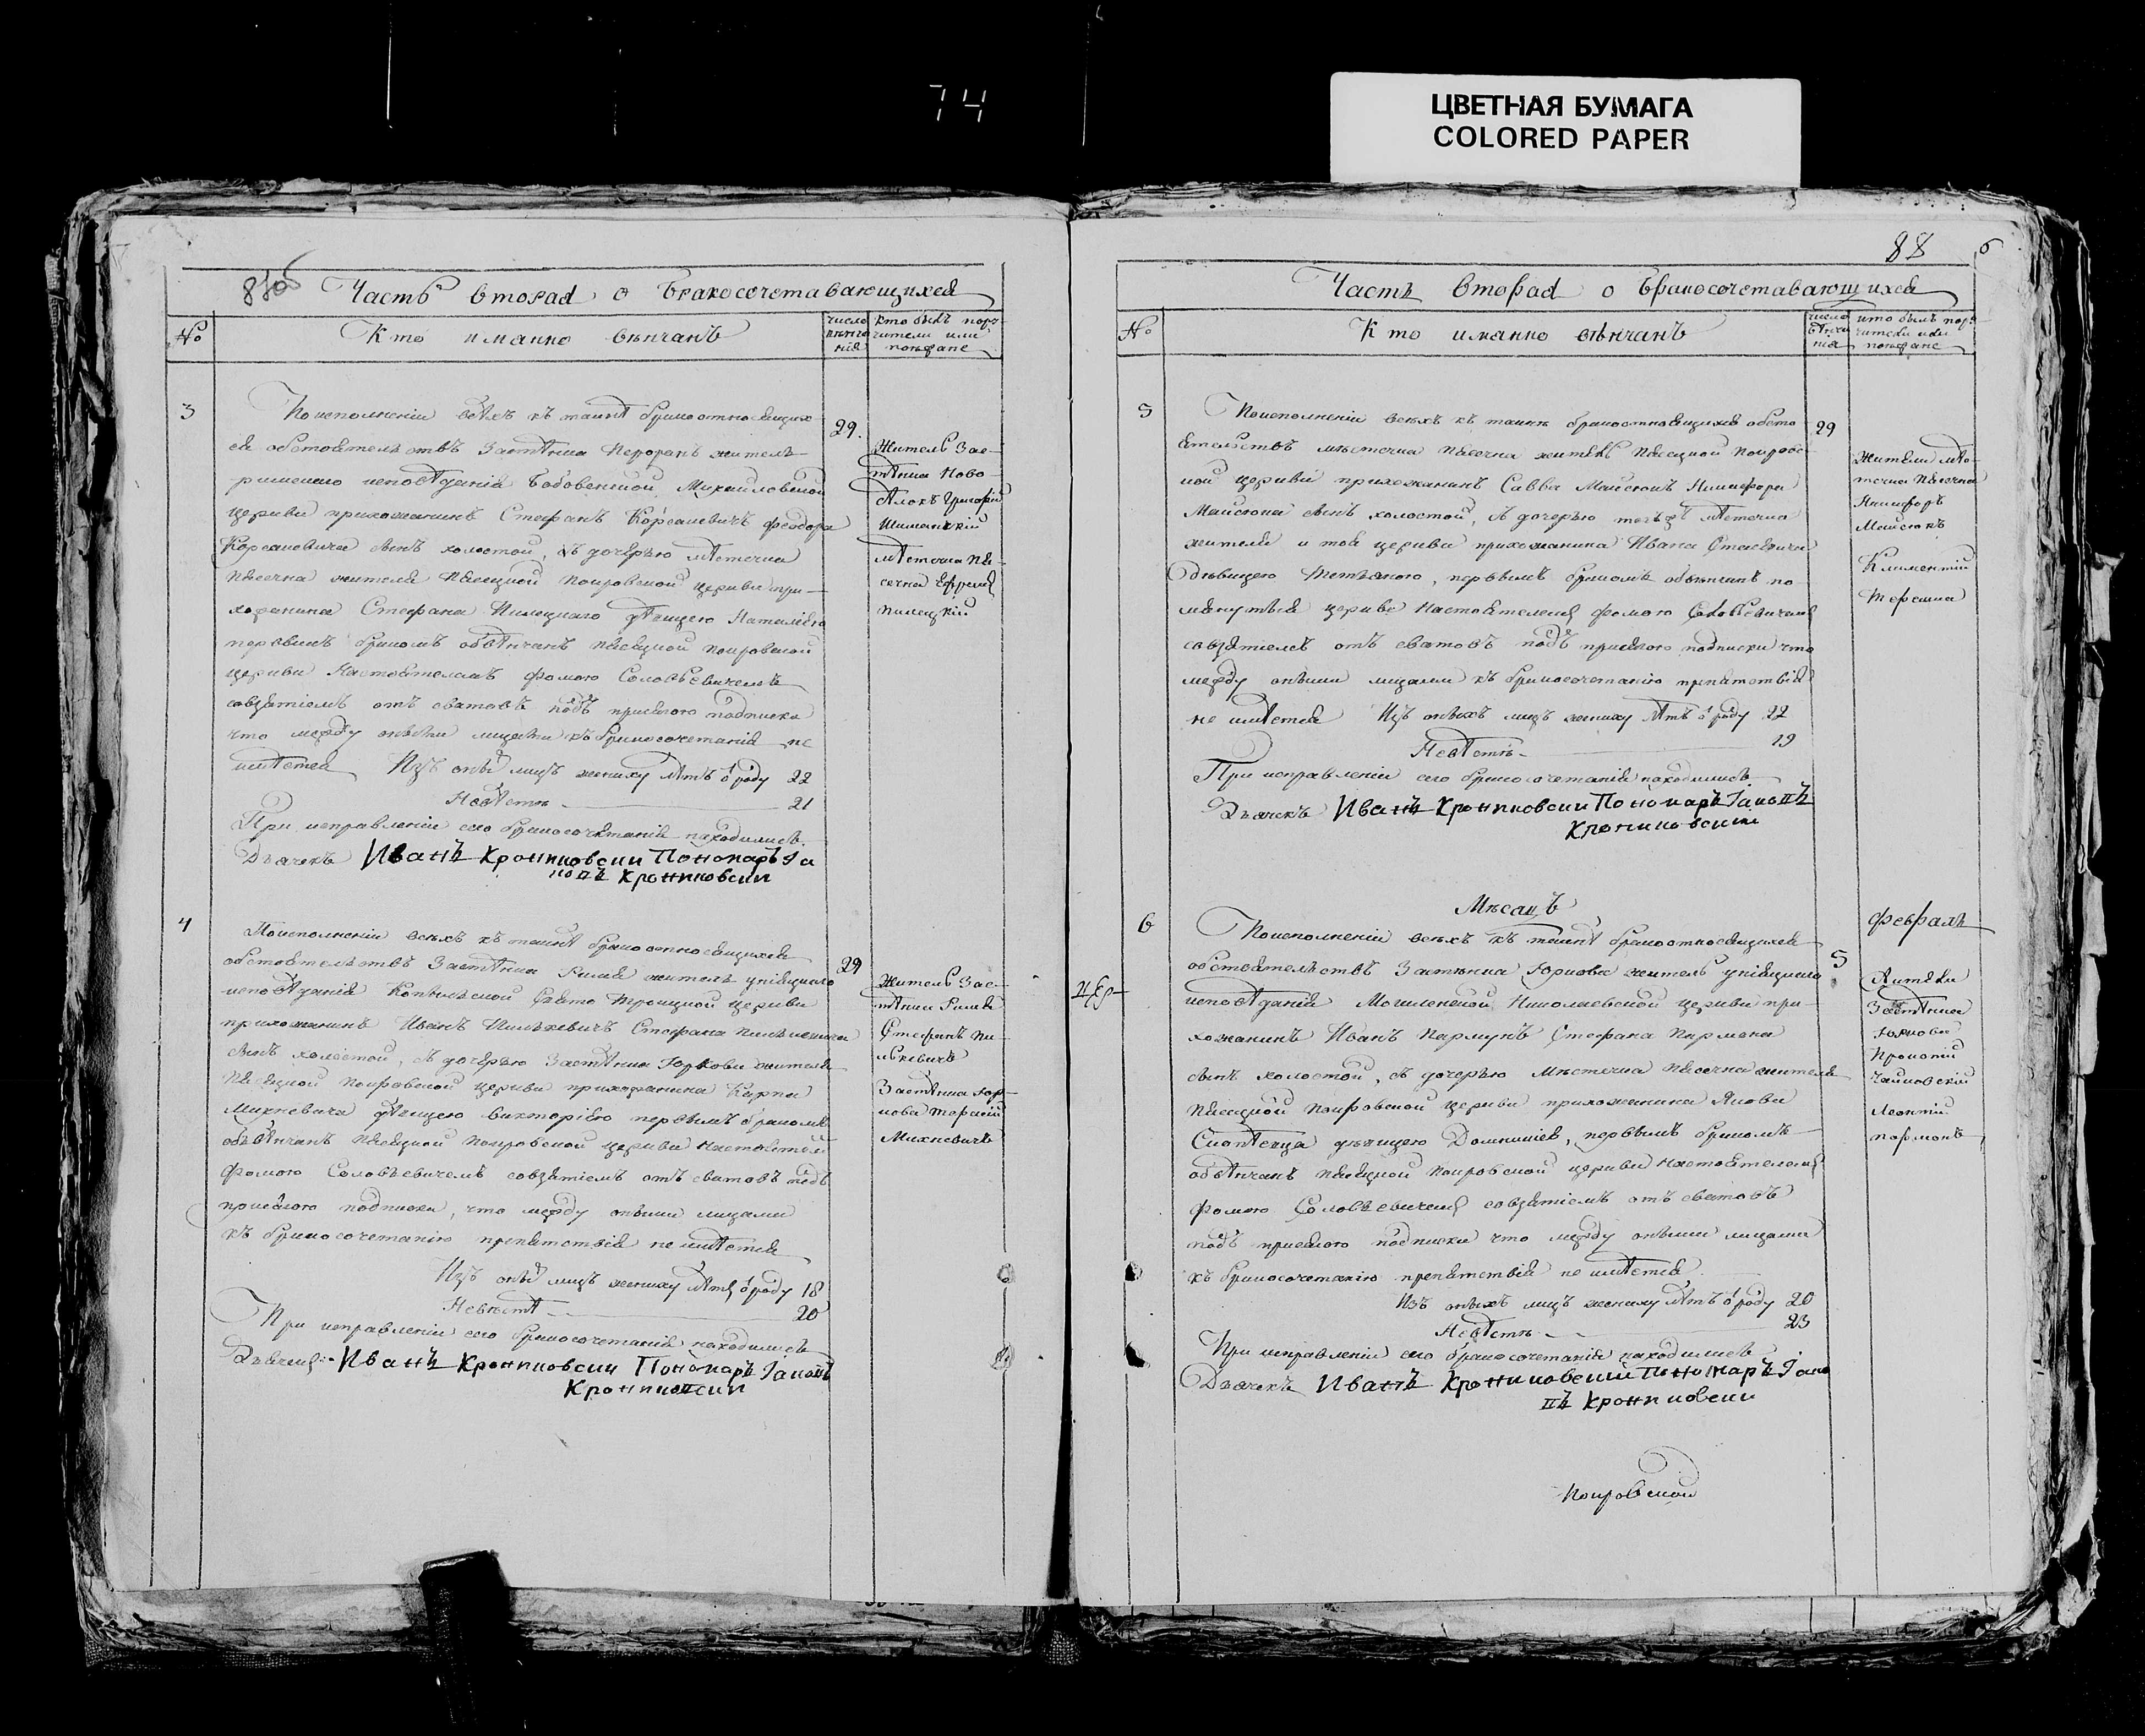 74
ЦВЕТНАЯ БУМАГА
COLORED PAPER
Часть вторая о бракосочетавающихся
№
Кто иманно вѣнчанъ
число вѣнчанія
кто былъ поручители или поѣзжане
3
По исполненіи всѣхъ къ таинѣ брака относящих
ся обстоятельствъ Застѣнка житель
римскаго исповѣданія Бобовенской Михайловской
церкви прихожанинъ Стефанъ Корсакевичъ Феодора
Корсакевича сынъ холостой, съ дочерью мѣстечка
Пѣсечна жителя Пѣсецкой Покровской церкви при-
хожанина Стефана Пилецкаго дѣвицею Наталіею
первымъ бракомъ обвѣнчанъ Пѣсецкой Покровской
церкви Настоятелемъ Фомою Соловьевичемъ
совзятіемъ отъ сватовъ подъ присягою подписки
что между оными лицами къ бракосочетанія не
имѣется Изъ оныхъ лицъ жениху лѣтъ ѿ роду 22
Невѣстѣ 21
При исправленіи сего бракосочетанія находились
Дьячекъ Иванъ Крониковски Пономаръ Іа
копъ Крониковски
29.
Житель Зас-
тѣнка Ново-
Григорій
мѣстечка Пѣ-
сечна Ефремъ
Пилецкій
4
По исполненіи всѣхъ къ таинѣ брака относящихся
обстоятельствъ Застѣнка Рима житель уніяцкаго
исповѣданія Копыльской Свято Троицкой церкви
прихожанинъ Иванъ Пилькевичъ Стефана
сынъ холостой, съ дочерью Застѣнка Юркови жителя
Пѣсецкой Покровской церкви прихожанина Карпа
Михневича дѣвицею Викторіею первымъ бракомъ
обвѣнчанъ Пѣсецкой Покровской церкви Настоятелемъ
Фомою Соловьевичемъ совзятіемъ отъ сватовъ подъ
присягою подписки, что между оными лицами
къ бракосочетанію препятствія не имѣется
Изъ оныхъ лицъ жениху лѣтъ ѿ роду 18
Невѣстѣ 20
При исправленіи сего бракосочетанія находились
Дьячекъ Иванъ Крониковски Пономаръ Іакопъ
Крониковски
29
Житель Зас-
тѣнка Рима
Стефанъ Пи-
лькевичъ
Застѣнка Юр-
кови Тарасій
Михневичъ
88
6
Часть вторая о бракосочетавающихся
№
Кто иманно вѣнчанъ
число вѣнчанія
кто былъ поручители или поѣзжане
5
По исполненіи всѣхъ къ таинѣ брака относящихся обсто
ятельствъ мѣстечка Пѣсечна житель Пѣсецкой Покровс-
кой церкви прихожанинъ Савва Майсюкъ Никифора
Майсюка сынъ холостой, съ дочерью тогожъ мѣстечка
жителя и той церкви прихожанина Ивана Стасевича
дѣвицею Татьяною, первымъ бракомъ обвѣнчанъ по-
мянутыя церкви Настоятелемъ Фомою Соловьевичемъ
совзятіемъ отъ сватовъ подъ присягою подписки что
между оными лицами къ бракосочетанію препятствія
не имѣется Изъ оныхъ лицъ жениху лѣтъ ѿ роду 22
Невѣстѣ 19
При исправленіи сего бракосочетанія находились
Дьячекъ Иванъ Крониковски Пономаръ Іакопъ
Крониковски
29
Жители мѣс-
течка Пѣсечна
Никифоръ
Майсюкъ
Климентій
Мѣсяцъ
Февраль
6
По исполненіи всѣхъ къ таинѣ брака относящихся
обстоятельствъ Застѣнка Юркови житель уніяцкаго
исповѣданія Могиленской Николаевской церкви при-
хожанинъ Иванъ Пармунъ Стефана Пармона
сынъ холостой, съ дочерью Мѣстечка Пѣсечна жителя
Пѣсецкой Покровской церкви прихожанина Якова
дѣвицею Домникіею, первымъ бракомъ
обвѣнчанъ Пѣсецкой Покровской церкви Настоятелемъ
Фомою Соловьевичемъ совзятіемъ отъ сватовъ
подъ присягою подписки что между оными лицами
къ бракосочетанію препятствія не имѣется
Изъ оныхъ лицъ жениху лѣтъ ѿ роду 20
Невѣстѣ 23
При исправленіи сего бракосочетанія находились
Дьячекъ Иванъ Крониковскій Пономаръ Іако
пъ Крониковски
5
Жители
Застѣнка
Юркови
Прокопій
Чайковскій
Леонтій
Пармонъ
Покровской